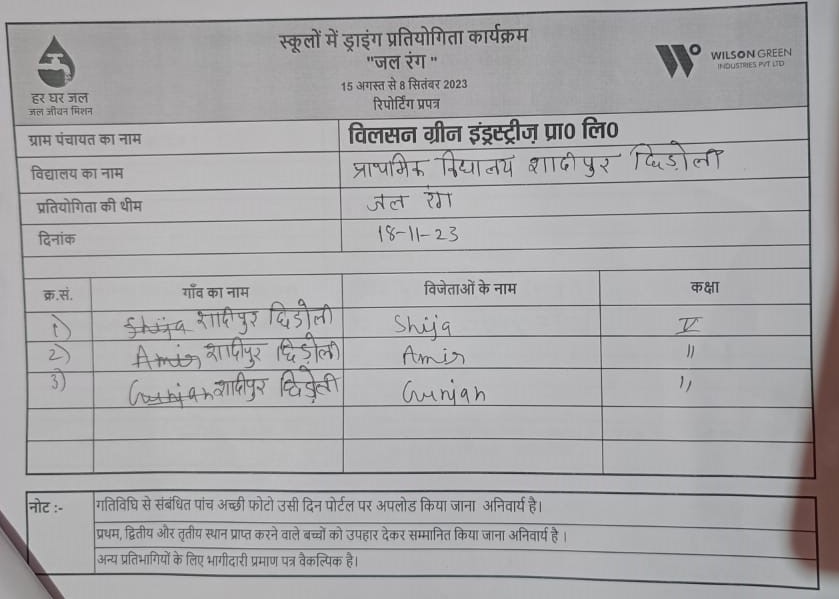 स्कूलों में ड्राइंग प्रतियोगिता कार्यक्रम
"जल रंग"
15 अगस्त से 8 सितंबर 2023
रिपोर्टिंग प्रपत्र
हर घर जल
जल जीवन मिशन
WILSON GREEN
INDUSTRIES PVT LTD
ग्राम पंचायत का नाम विलसन ग्रीन इंड्रस्ट्रीज़ प्रा0 लि0
विद्यालय का नाम प्राथमिक विद्यालय शादीपुर छिडोली
प्रतियोगिता की थीम जल रंग
दिनांक 18-11-23
क्र.सं. गाँव का नाम विजेताओं के नाम कक्षा
1) Shija शादीपुर छिडोली Shija V
2) Amir शादीपुर छिडोली Amir "
3) Gunjan शादीपुर छिडोली Gunjan "
नोट :- गतिविधि से संबंधित पांच अच्छी फोटो उसी दिन पोर्टल पर अपलोड किया जाना अनिवार्य है।
प्रथम, द्वितीय और तृतीय स्थान प्राप्त करने वाले बच्चों को उपहार देकर सम्मानित किया जाना अनिवार्य है।
अन्य प्रतिभागियों के लिए भागीदारी प्रमाण पत्र वैकल्पिक है।